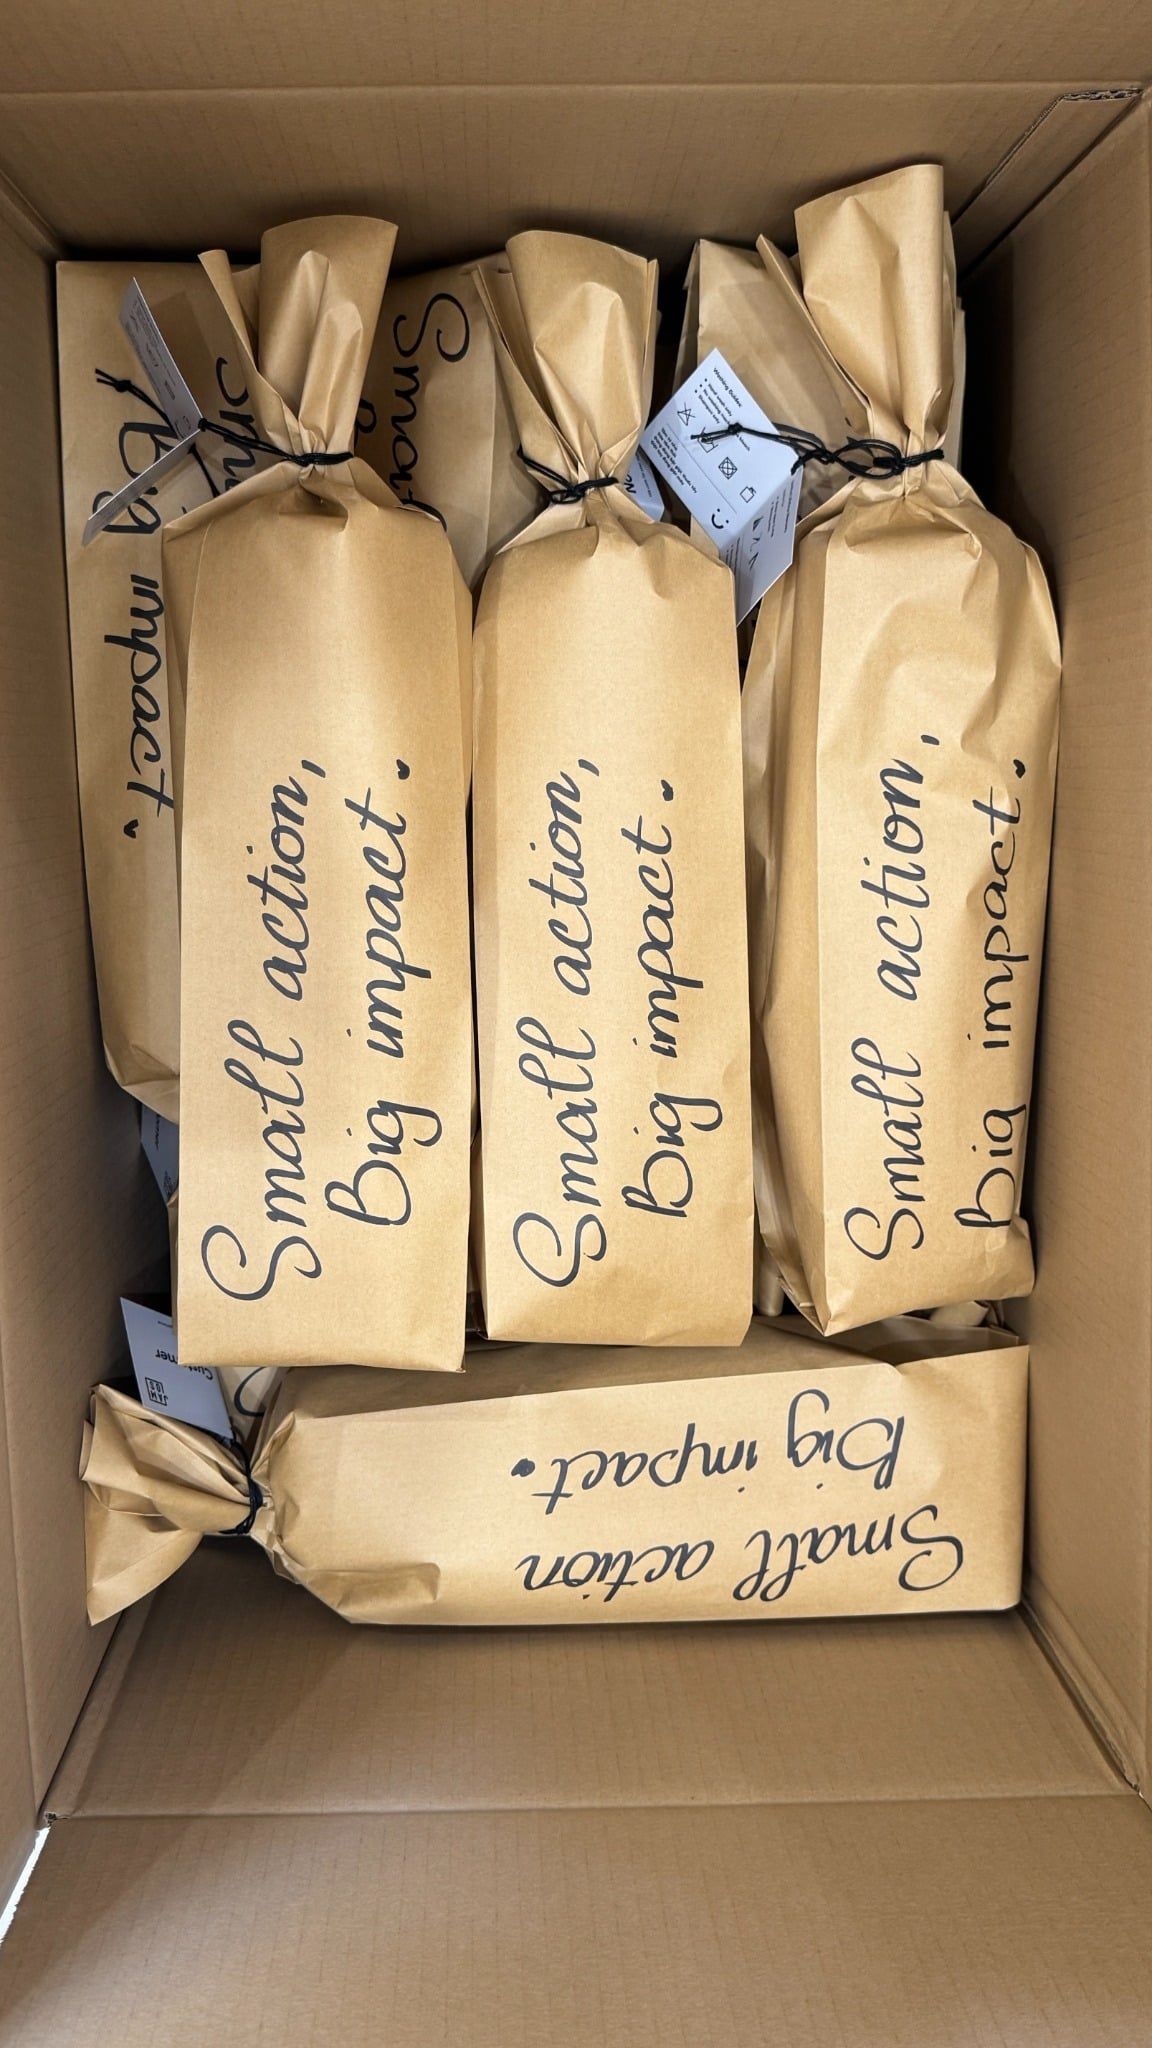 Small action,
Big impact.
Small action,
Big impact.
Small action,
Big impact.
Small action
Big impact.
Big impact.
Small
Washing Guides
Customer
JAM
LOOS